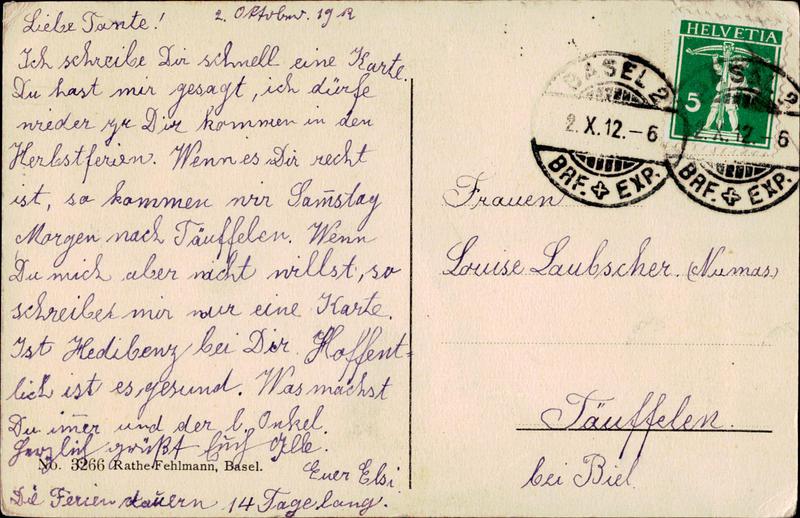 Liebe Tante! 2. Oktober 1912
Ich schreibe Dir schnell eine Karte.
Du hast mir gesagt, ich dürfe
wieder zu Dir kommen in den
Herbstferien. Wenn es Dir recht
ist, so kommen wir Samstag
Morgen nach Täuffelen. Wenn
Du mich aber nicht willst, so
schreibe mir nur eine Karte.
Ist Hedi bei Dir. Hoffent-
lich ist es gesund. Was machst
Du imer und der l. Onkel.
Herzlich grüßt Euch Alle.
Euer Elsi
Die Ferien dauern 14 Tage lang.
No. 3266 Rathe-Fehlmann, Basel.
HELVETIA
5
BASEL 2
2.X.12.-6
BRF. EXP.
BASEL 2
2.X.12.-6
BRF. EXP.
Frauen
Louise Laubscher. (Numas)
Täuffelen.
bei Biel.